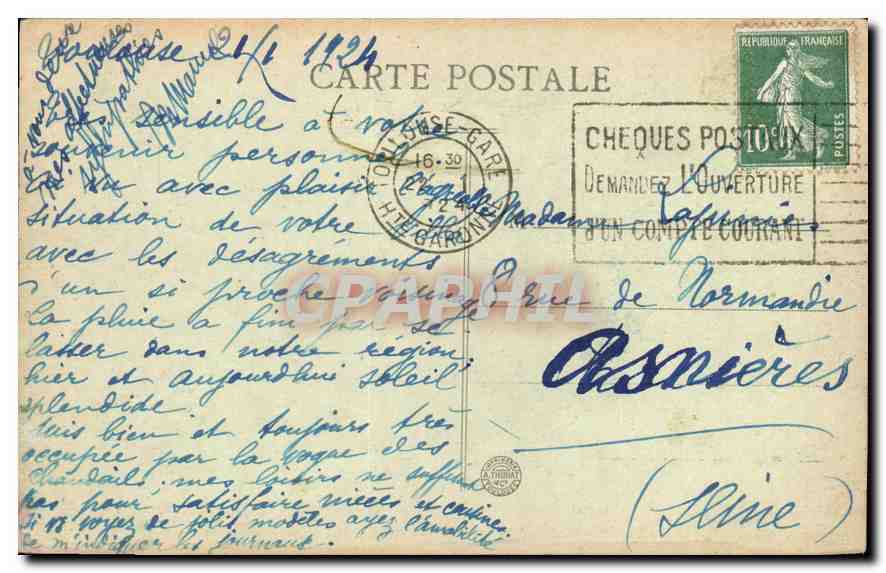 Toulouse 1/1 1924
CARTE POSTALE
Très sensible à votre
souvenir personnel
vu avec plaisir
situation de votre
avec les désagréments
d'un si proche voisinage
La pluie a fini par se
lasser dans notre région
hier et aujourd'hui soleil
splendide.
Suis bien et toujours très
occupée par la vogue des
chandails. mes loisirs ne suffisent
pas pour satisfaire nièces et cousines.
Si vs voyez de jolis modèles ayez l'amabilité
de m'indiquer les journaux.
à vous deux
affectueuses
sympathies
TOULOUSE-GARE
16·30
24
HTE GARONNE
CHEQUES POSTAUX
DEMANDEZ L'OUVERTURE
D'UN COMPTE COURANT
REPUBLIQUE FRANÇAISE
10c
POSTES
Madame
8 rue de Normandie
Asnières
(Seine)
A. THIRIAT
TOULOUSE
CPAPHIL